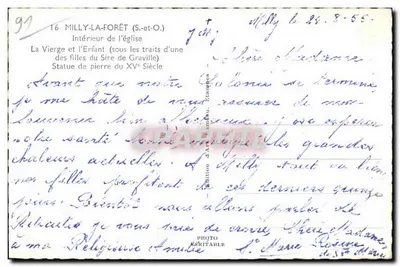 91
16 MILLY-LA-FORÊT (S.-et-O.)
Intérieur de l'église
La Vierge et l'Enfant (sous les traits d'une
des filles du Sire de Graville)
Statue de pierre du XVᵉ Siècle
Milly le 24-8-55
Chère Madame
Avant que notre Colonie se termine
je me hâte de vous de mon
souvenir bien J'espère
votre santé malgré les grandes
chaleurs actuelles. A Milly tout va bien
nos filles profitent de ces derniers quinze
jours. Bientôt nous allons parler de
Retraite je vous prie de croire, Chère Madame,
à ma Religieuse Amitié Sr Marie
PHOTO
VÉRITABLE